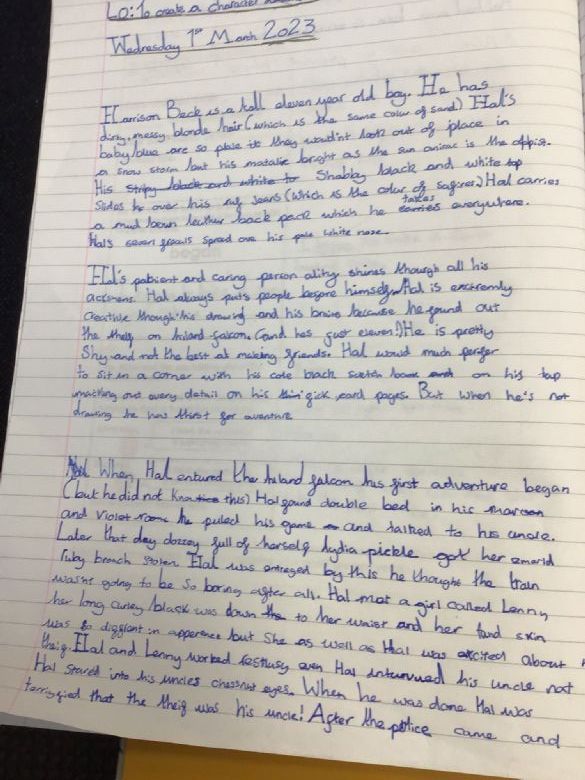 LO: To create a character
Wednesday 1st March 2023
Harrison Beck is a tall eleven year old boy. He has
dirty, messy blonde hair (which is the same colur of sand) Hal's
baby blue are so plae it they would'nt look out of place in
a snow storm but his matalic bright as the sun is the oppist.
His stripy black and white to Shabby black and white top
Slides he over his jeans (which is the colur of) Hal carries
a mud brown leather back pack which he carries takes everywhere.
Hal's spread ove his pale white nose.
Hal's patient and caring person ality shines through all his
Hal always puts people before himself. Hal is
Creative through his drawing and his brains because he found out
the on falcon. (and hes just eleven!) He is pretty
Shy and not the best at making friends. Hal would much
to sit in a corner with his black on his
out every detail on his card pages. But when he's not
drawing he has thirst for
When Hal entured the falcon his first adventure began
(but he did not this) Hal found double bed in his maroon
and violet room he puled his game and talked to his uncle.
Later that day full of herself lydia pickle got her
ruby broach stolen. Hal was by this he thought the train
wasn't going to be so boring after all. Hal met a girl called Lenny
her long curley black was down to her waist and her skin
was so in but She as well as Hal was excited about
Hal and Lenny worked even Hal his uncle not
Hal stared into his uncles eyes. When he was done Hal was
that the was his uncle! After the police came and